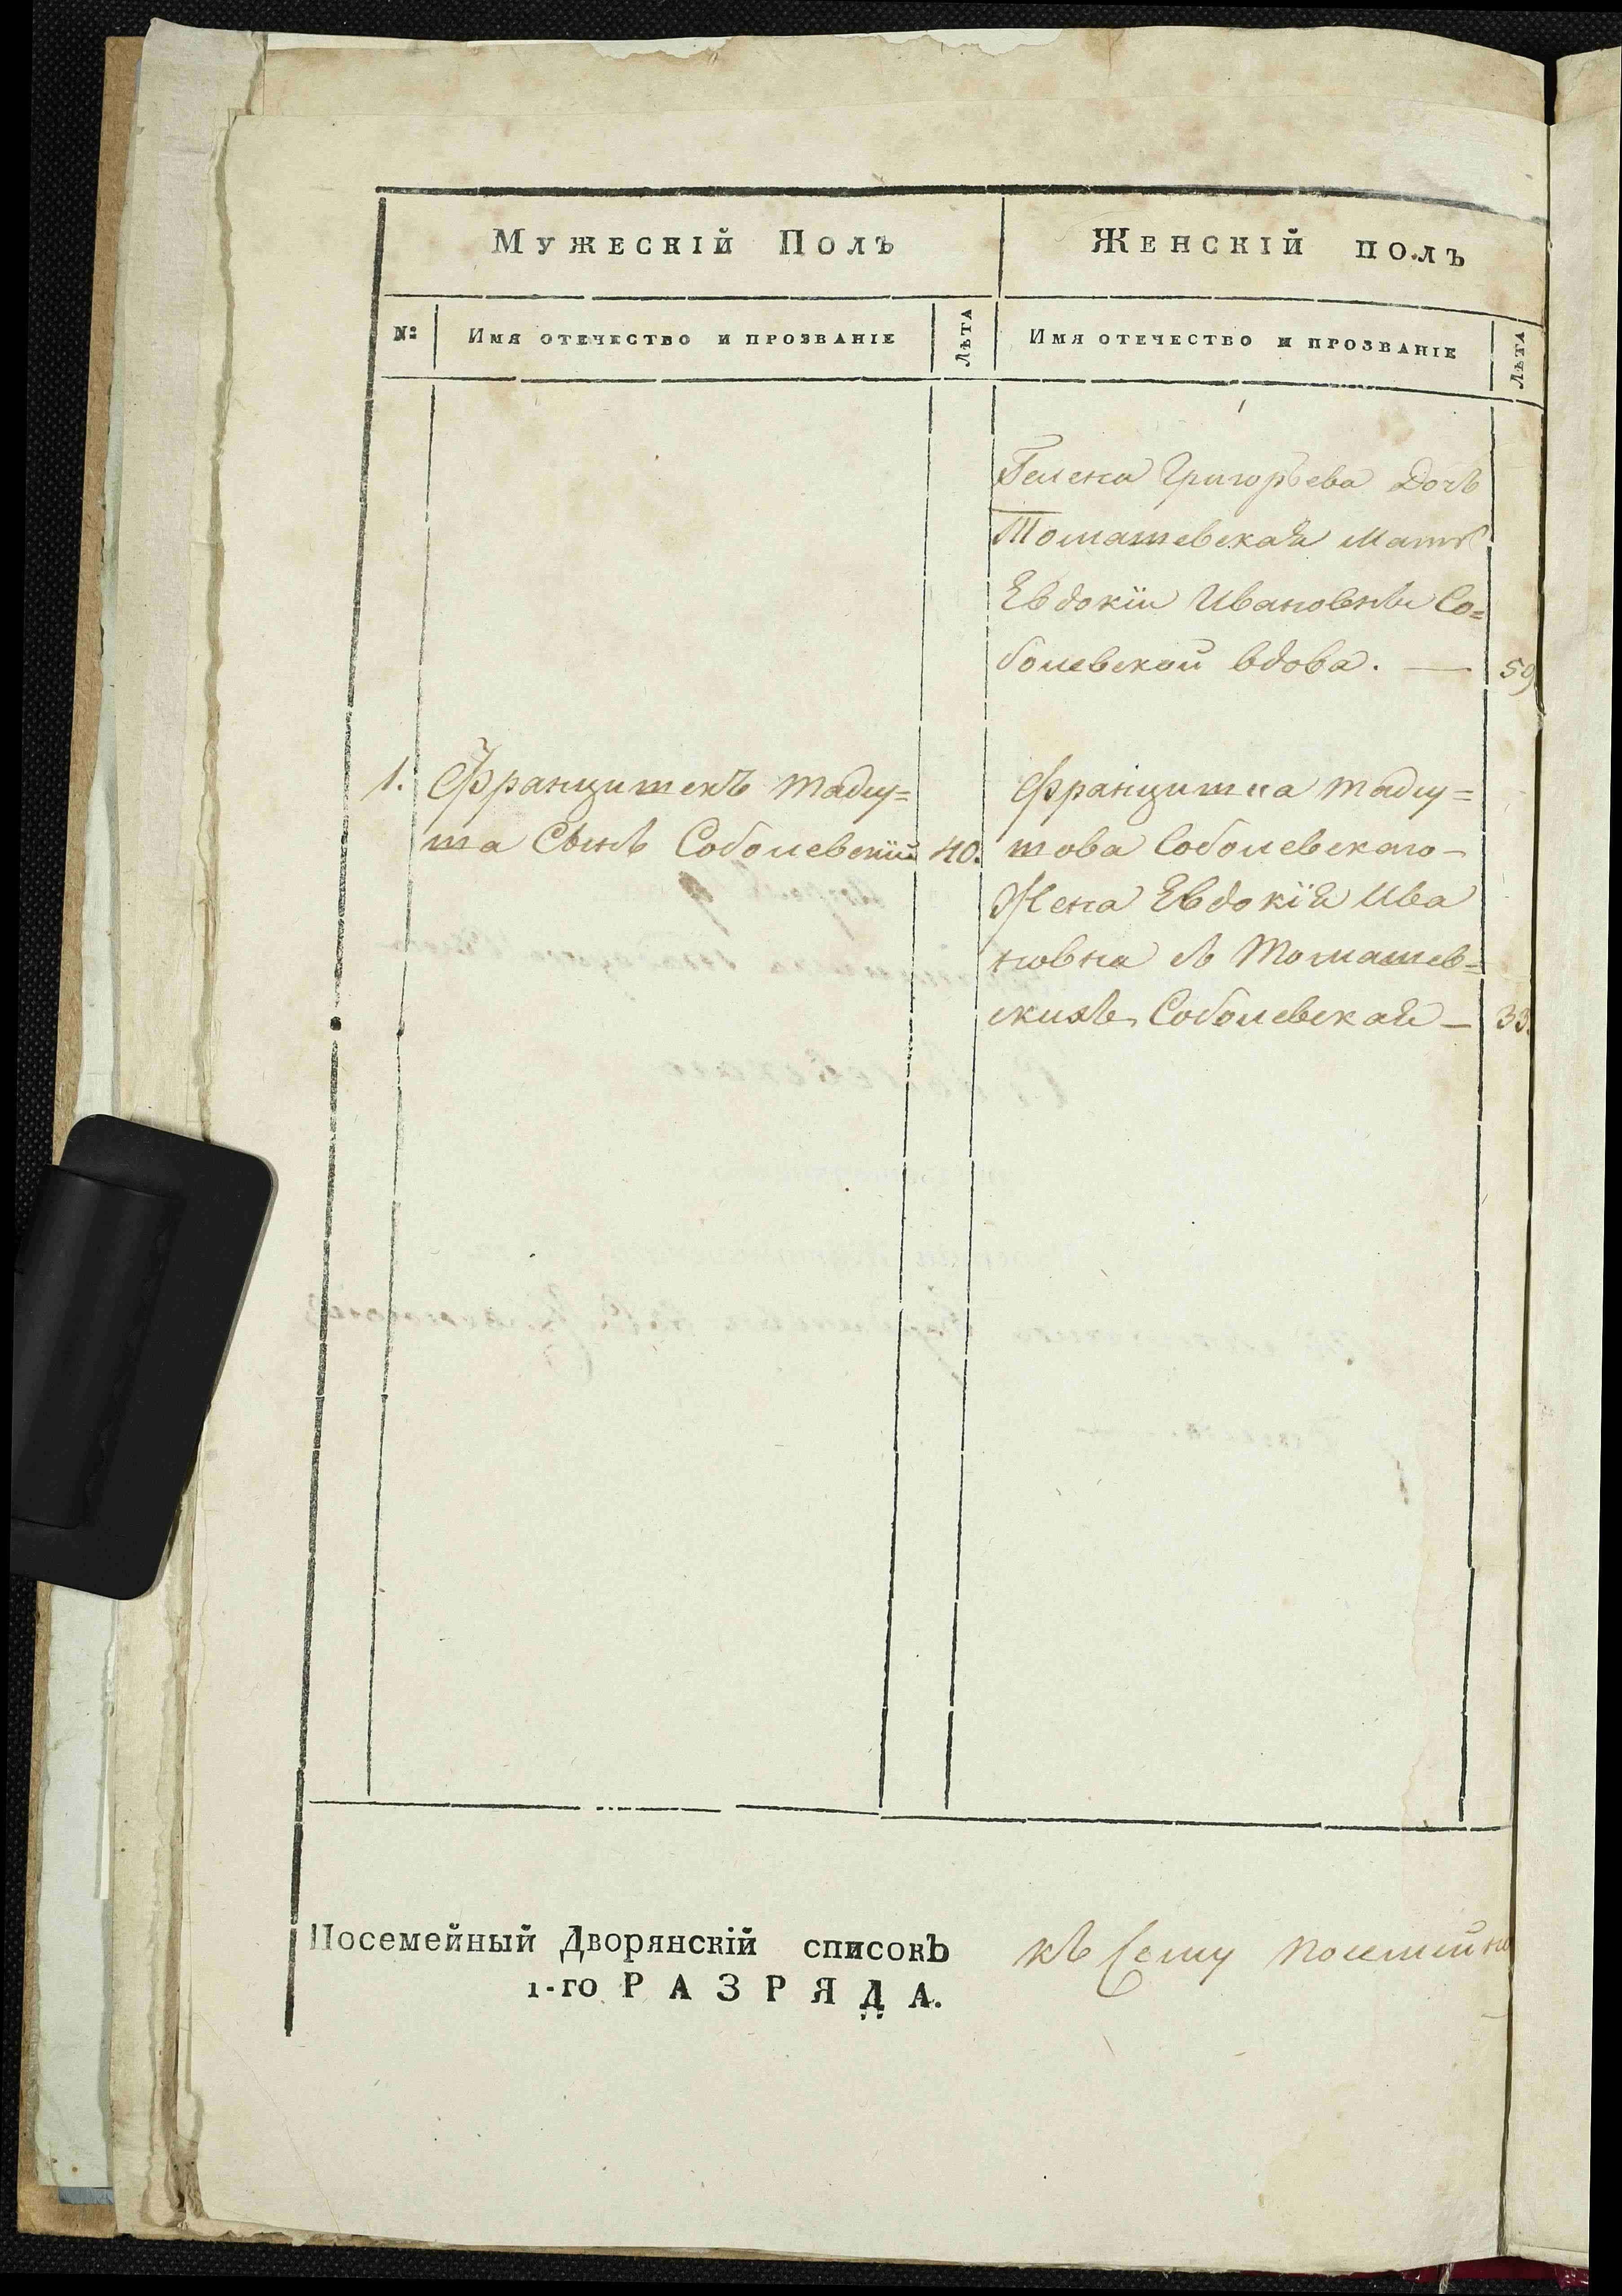 Мужескій Полъ
Женскій полъ
№:
Имя отечество и прозваніе
Лѣта
Имя отечество и прозваніе
Лѣта
Гелена Григорьева Дочь
Томашевская Мать
Евдокіи Ивановны Со=
болевской вдова. — 59
1. Францишекъ Тадеу=
ша Сынъ Соболевскій 40.
Францишка Тадеу=
шова Соболевскаго –
Жена Евдокія Ива
новна съ Томашев=
скихъ Соболевская – 33.
Посемейный Дворянскій списокъ
1-го РАЗРЯДА.
къ сему посемейно